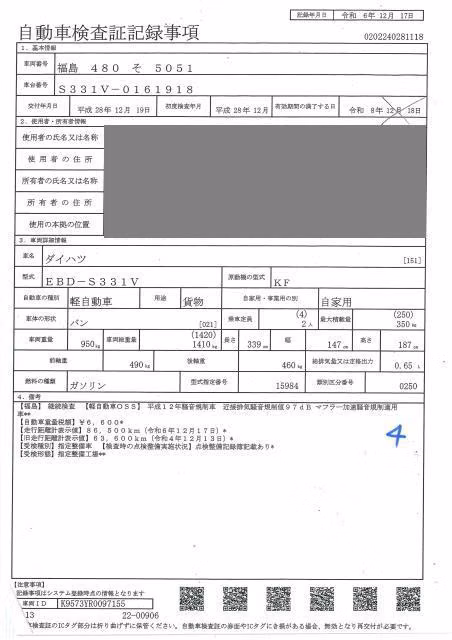 記録年月日 令和 6年12月 17日
自動車検査証記録事項
0202240281118
1. 基本情報
車両番号 福島 480 そ 5051
車台番号 S331V-0161918
交付年月日 平成 28年 12月 19日 初度検査年月 平成 28年 12月 有効期間の満了する日 令和 8年 12月 18日
2. 使用者・所有者情報
使用者の氏名又は名称
使用者の住所
所有者の氏名又は名称
所有者の住所
使用の本拠の位置
3. 車両詳細情報
車名 ダイハツ [151]
型式 EBD-S331V 原動機の型式 KF
自動車の種別 軽自動車 用途 貨物 自家用・事業用の別 自家用
車体の形状 バン [021] 乗車定員 (4) 2人 最大積載量 (250) 350kg
車両重量 950kg 車両総重量 (1420) 1410kg 長さ 339cm 幅 147cm 高さ 187cm
前軸重 490kg 後軸重 460kg 総排気量又は定格出力 0.65 L
燃料の種類 ガソリン 型式指定番号 15984 類別区分番号 0250
4. 備考
【福島】 継続検査 【軽自動車OSS】 平成12年騒音規制車 近接排気騒音規制値97dB マフラー加速騒音規制適用
車**
【自動車重量税額】¥6,600*
【走行距離計表示値】86,500km(令和6年12月17日)*
【旧走行距離計表示値】63,600km(令和4年12月13日)*
【受検種別】指定整備車 【検査時の点検整備実施状況】点検整備記録簿記載あり*
【受検形態】指定整備工場**
4
【注意事項】
記録事項はシステム登録時点の情報となります
車両ID K9573YR0097155
13 22-00906
検査証のICタグ部分は折り曲げずに保管ください。自動車検査証の券面やICタグに き損がある場合、無効となり再交付が必要です。